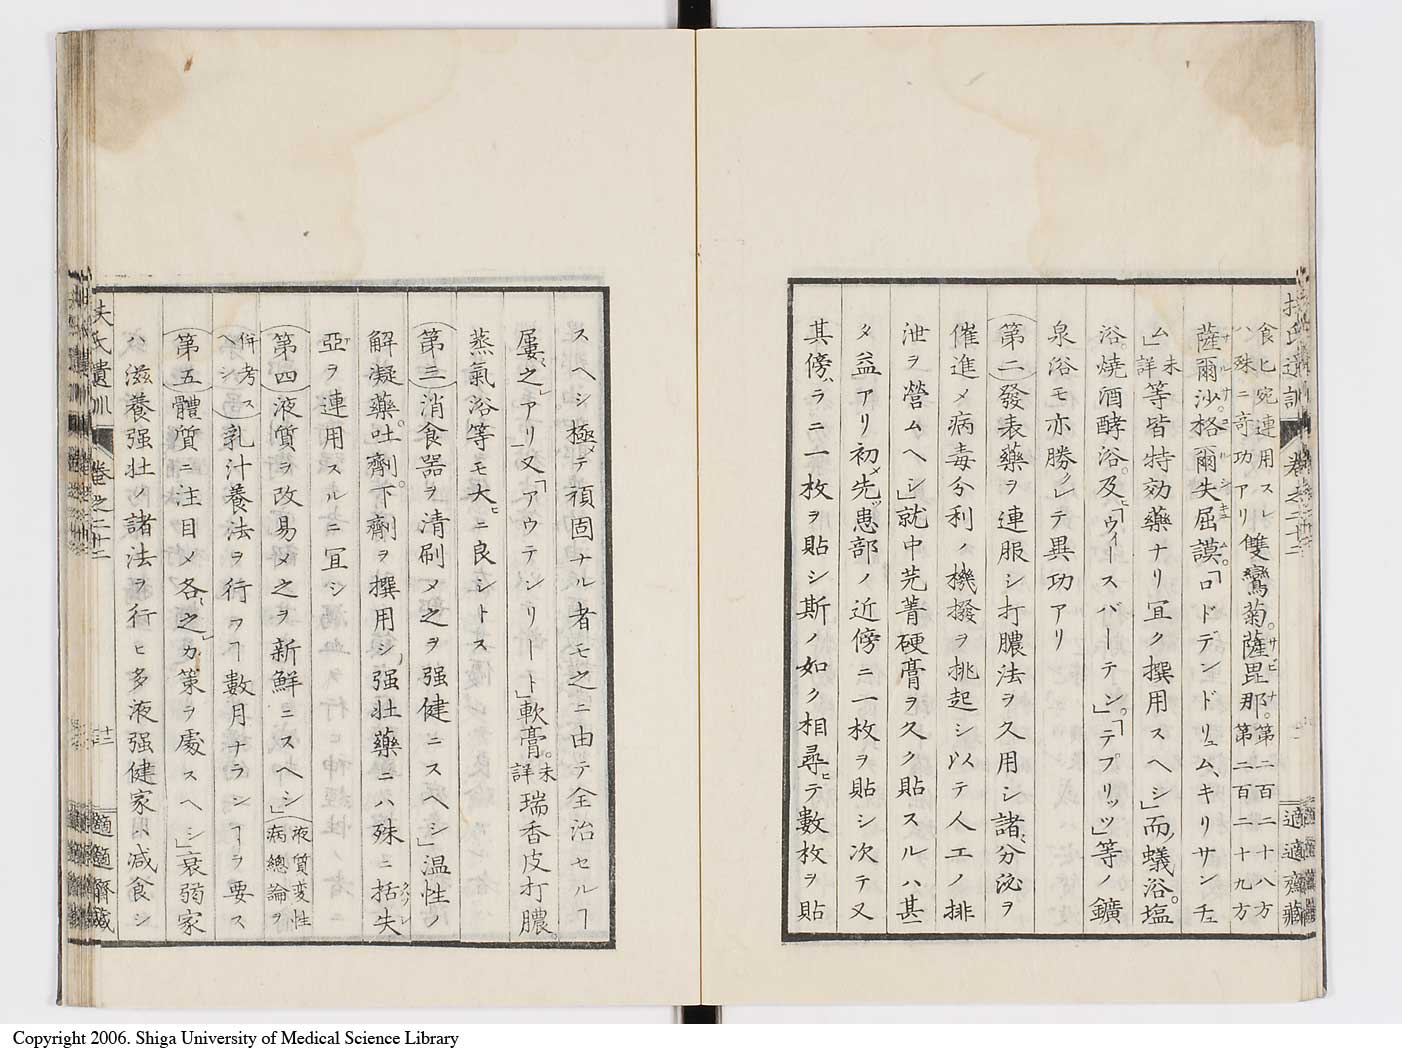 食匕宛連用スル
ハ殊ニ奇功アリ雙鸞菊。薩毘那。第二百二十八方
第二百二十九方
薩爾沙。格爾失屈謨。「ロドデンドリュム、キリサンチュ
ム」未詳等皆特効藥ナリ宜ク撰用スヘシ」而蟻浴。塩
浴。燒酒酵浴。及ヒ「ウィースバーテン」。「テプリッツ」等ノ鑛
泉浴モ亦勝レテ異功アリ
第二發表藥ヲ連服シ打膿法ヲ久用シ諸分泌ヲ
催進メ病毒分利ノ機撥ヲ挑起シ以テ人工ノ排
泄ヲ營ムヘシ」就中芫菁硬膏ヲ久ク貼スルハ甚
タ益アリ初メ先ツ患部ノ近傍ニ一枚ヲ貼シ次テ又
其傍ラニ一枚ヲ貼シ斯ノ如ク相尋ヒテ數枚ヲ貼
スヘシ極メテ頑固ナル者モ之ニ由テ全治セルヿ
屢之アリ」又「アウテンリート」軟膏。未詳瑞香皮打膿。
蒸氣浴等モ大ヒニ良シトス
第三消食器ヲ清刷メ之ヲ强健ニスヘシ」温性ノ
解凝藥。吐劑。下劑ヲ撰用シ强壮藥ニハ殊ニ括失
亞ヲ連用スルニ宜シ
第四液質ヲ改易メ之ヲ新鮮ニスヘシ」液質変性
病總論ヲ
併考ス
ヘシ乳汁養法ヲ行フヿ數月ナランヿヲ要ス
第五體質ニ注目メ各之カ策ヲ處スヘシ」衰弱家
ハ滋養强壮ノ諸法ヲ行ヒ多液强健家ハ減食シ
扶氏遺訓
卷之二十二
十二
適適齋藏
適適齋藏
Copyright 2006. Shiga University of Medical Science Library